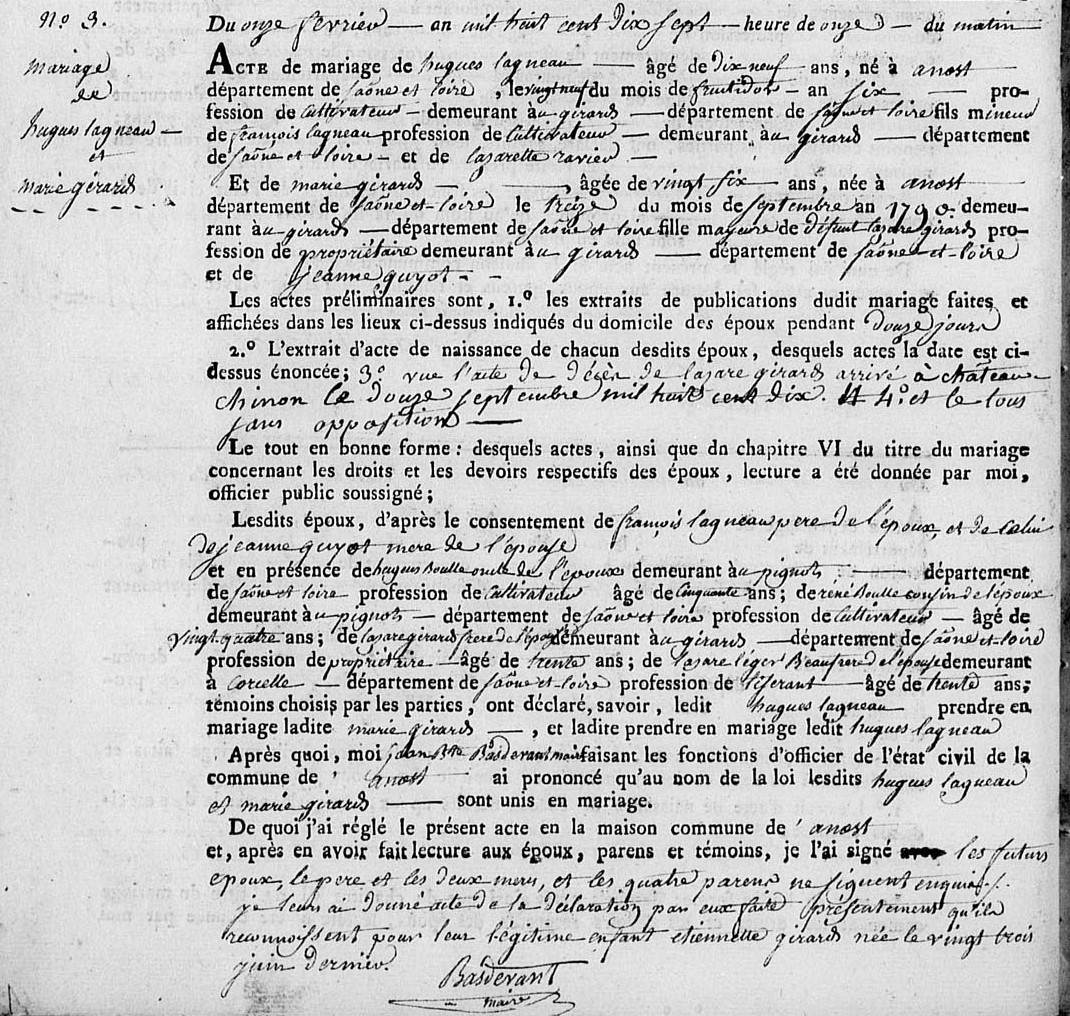 N.o 3.
Mariage
de
hugues lagneau —
et
marie girard
Du onze fevrier — an mil huit cent dix sept — heure de onze — du matin
ACTE de mariage de hugues lagneau — âgé de dix neuf ans, né à anost
département de saône et loire, le vingt neuf du mois de fructidor — an six — pro-
fession de cultivateur — demeurant àu girards — département de saône et loire fils mineur
de françois lagneau profession de Cultivateur — demeurant àu girards — département
de saône et loire — et de lazarette ravier —
Et de marie girard — , âgée de vingt six — ans, née à anost
département de saône et loire le treize du mois de septembre an 1790. demeu-
rant àu girards — département de saône et loire fille majeure de défunt lazare girard pro-
fession de propriétaire demeurant àu girards — département de saône et loire
et de jeanne guyot - -
Les actes préliminaires sont, 1.º les extraits de publications dudit mariage faites et
affichées dans les lieux ci-dessus indiqués du domicile des époux pendant douze jours
2.º L'extrait d'acte de naissance de chacun desdits époux, desquels actes la date est ci-
dessus énoncée; 3º vue l'acte de décès de lazare girard arrivé à chateau-
chinon le douze septembre mil huit cent dix. 4.º et le tous
sans opposition —
Le tout en bonne forme : desquels actes, ainsi que du chapitre VI du titre du mariage
concernant les droits et les devoirs respectifs des époux, lecture a été donnée par moi,
officier public soussigné;
Lesdits époux, d'après le consentement de françois lagneau pere de l'époux, et de celui
de jeanne guyot mere de l'épouse
et en présence de hugues Boulle oncle de l'époux demeurant àu pignots — département
de saône et loire profession de Cultivateur âgé de Cinquante ans; de rené Boulle cousin de l'époux
demeurant àu pignots — département de saône et loire profession de Cultivateur — âgé de
vingt quatre ans; de lazare girard frere de l'épouse demeurant àu girards — département de saône et loire
profession de propriétaire — âgé de trente ans; de lazare léger Beaufrere de l'épouse demeurant
à Corcelle — département de saône et loire profession de tisserant — âgé de trente ans;
témoins choisis par les parties, ont déclaré, savoir, ledit hugues lagneau prendre en
mariage ladite marie girard — , et ladite prendre en mariage ledit hugues lagneau
Après quoi, moi jean Btte Basdevant maire faisant les fonctions d'officier de l'état civil de la
commune de anost ai prononcé qu'au nom de la loi lesdits hugues lagneau
et marie girard — sont unis en mariage.
De quoi j'ai réglé le présent acte en la maison commune de anost
et, après en avoir fait lecture aux époux, parens et témoins, je l'ai signé avec les futurs
epoux, le pere et les deux meres, et les quatre parens ne signent enquis./.
je leurs ai donné acte de la déclaration par eux faite présentement qu'ils
reconnoissent pour leur légitime enfant etiennette girard née le vingt trois
juin dernier.
Basdevant
maire